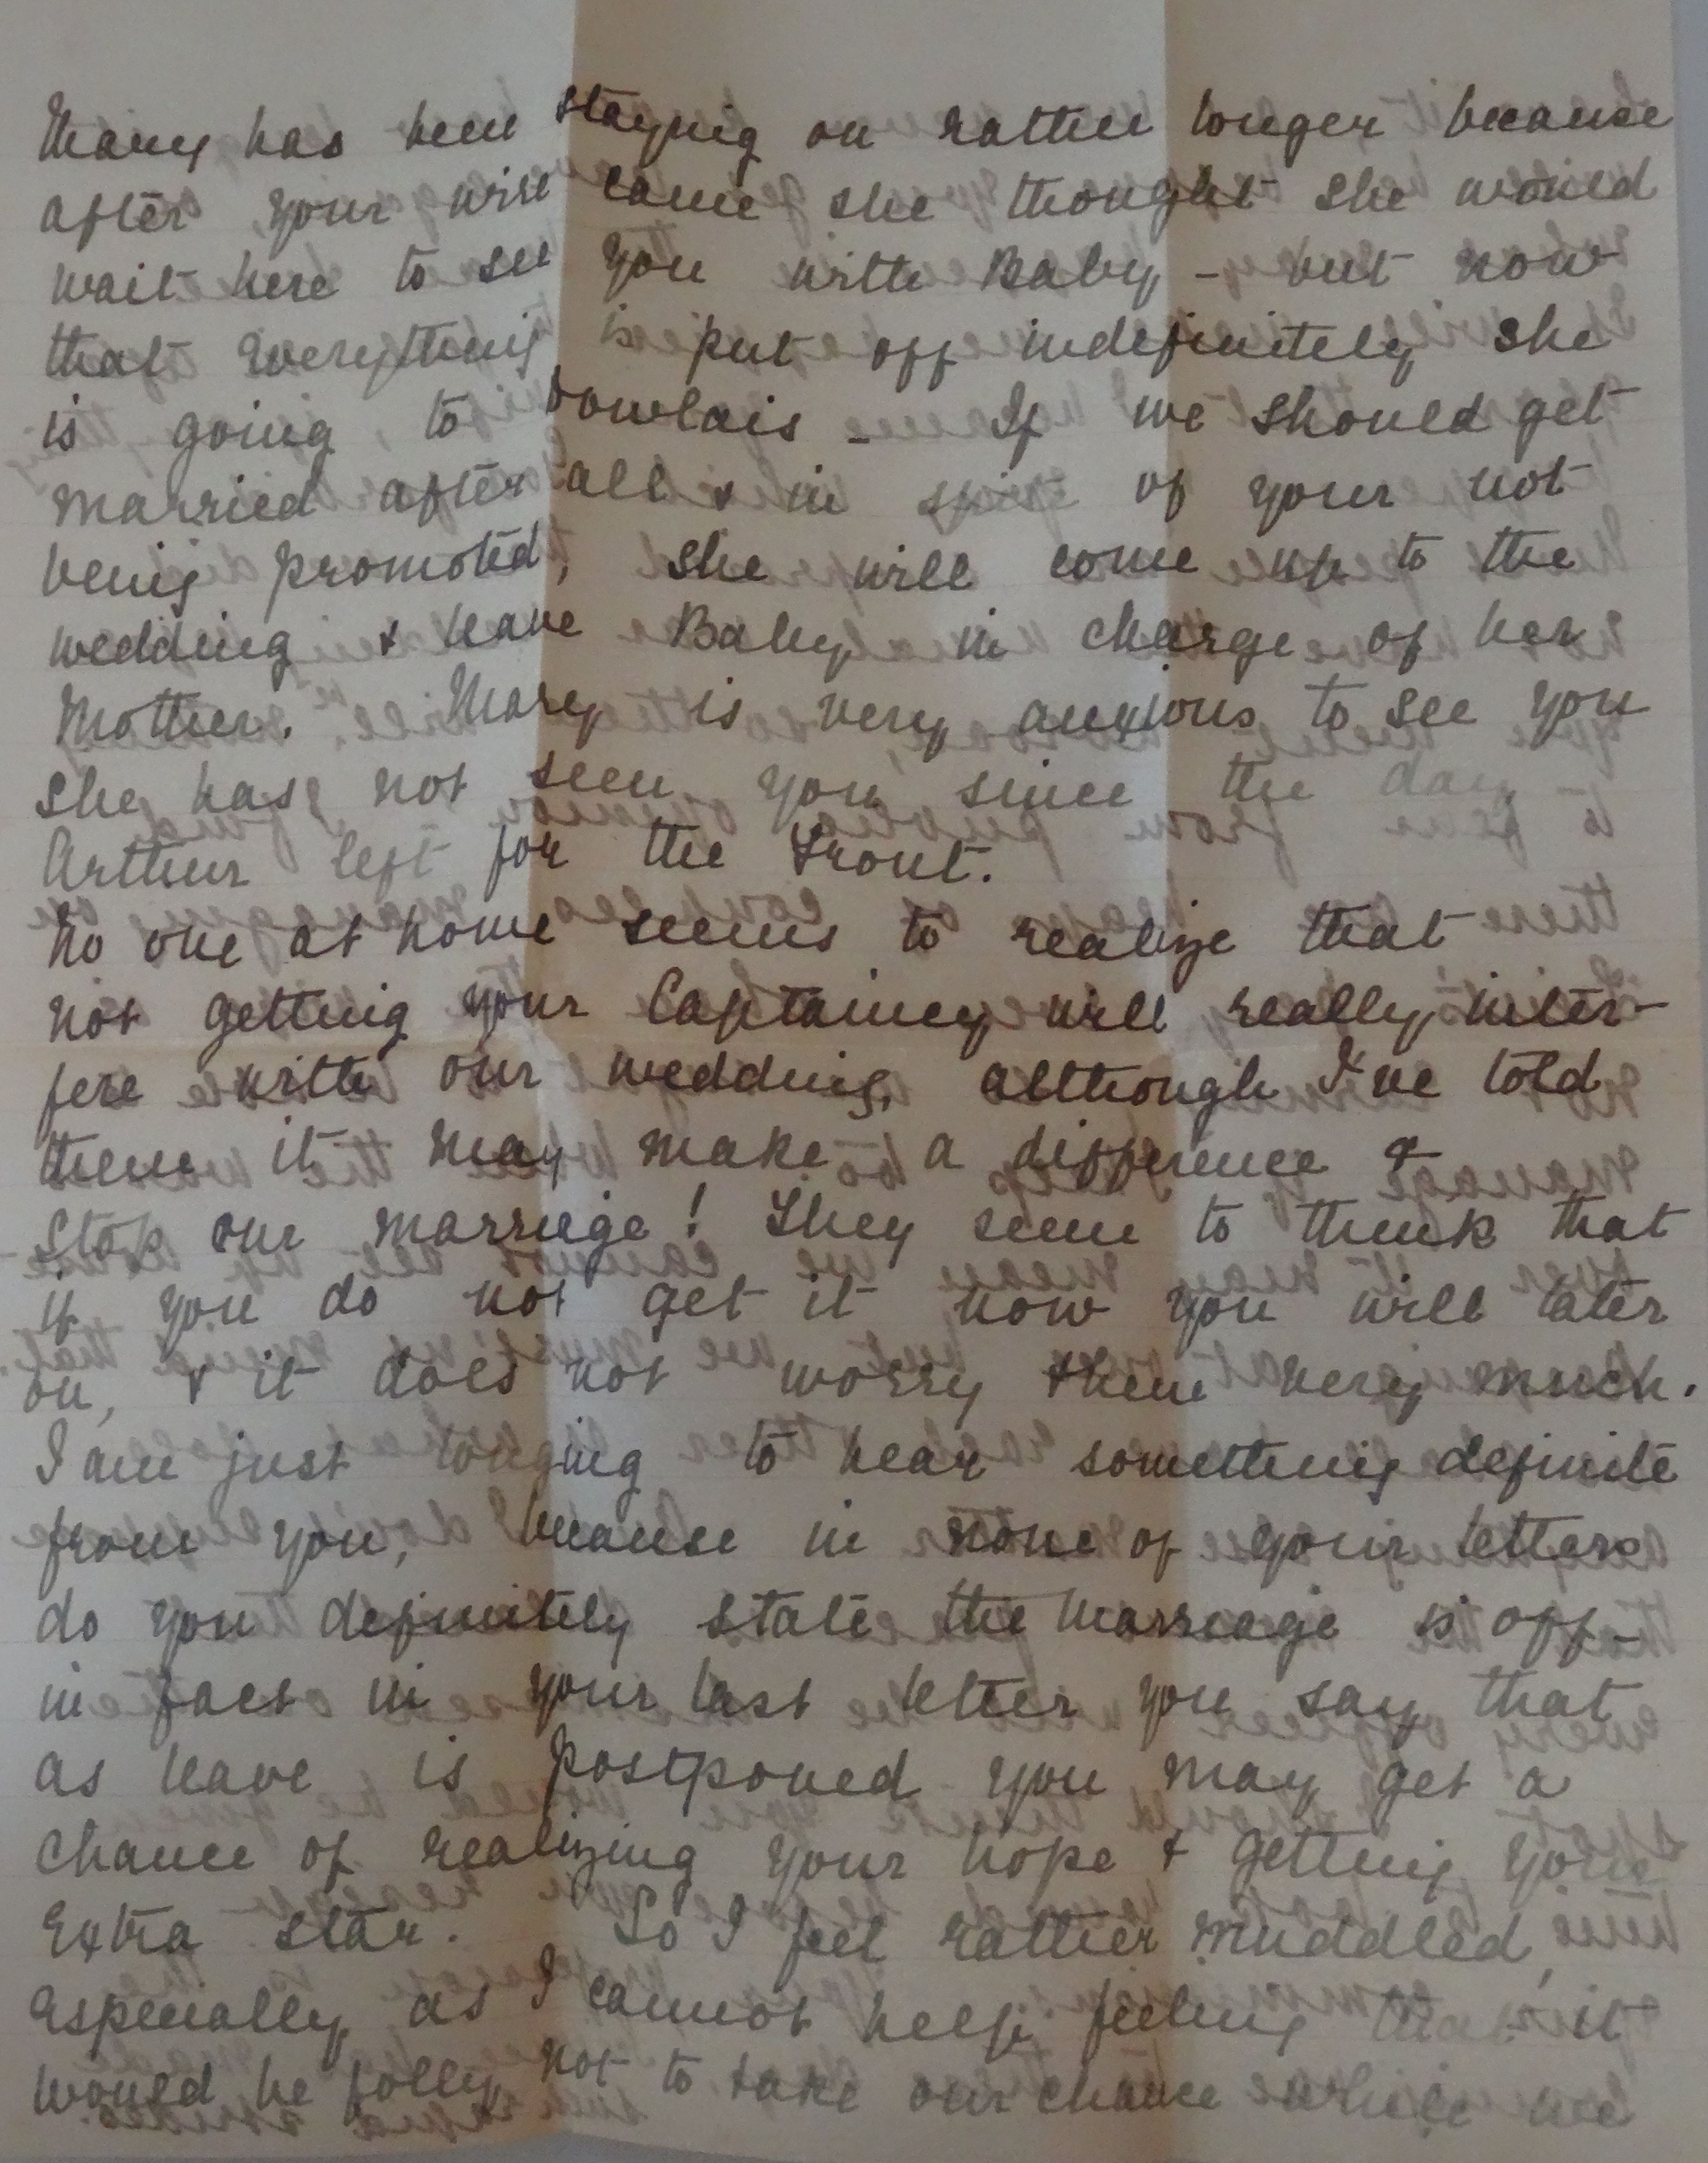 Mary has been staying on rather longer because
after your wire came she thought she would
wait here to see you with Baby – but now
that everything is put off indefinitely she
is going to Dowlais – If we should get
married after all & in spite of your not
being promoted, she will come up to the
wedding & leave Baby in charge of her
Mother. Mary is very anxious to see you
she has not seen you since the day
Arthur left for the Front.
No one at home seems to realize that
not getting your Captaincy will really inter-
fere with our wedding, although I've told
them it may make a difference &
stop our marriage! They seem to think that
if you do not get it now you will later
on, & it does not worry them very much.
I am just longing to hear something definite
from you, because in none of your letters
do you definitely state the marriage is off –
in fact in your last letter you say that
as leave is postponed you may get a
chance of realizing your hope & getting your
extra star. So I feel rather muddled,
especially as I cannot help feeling that it
would be folly not to take our chance while we